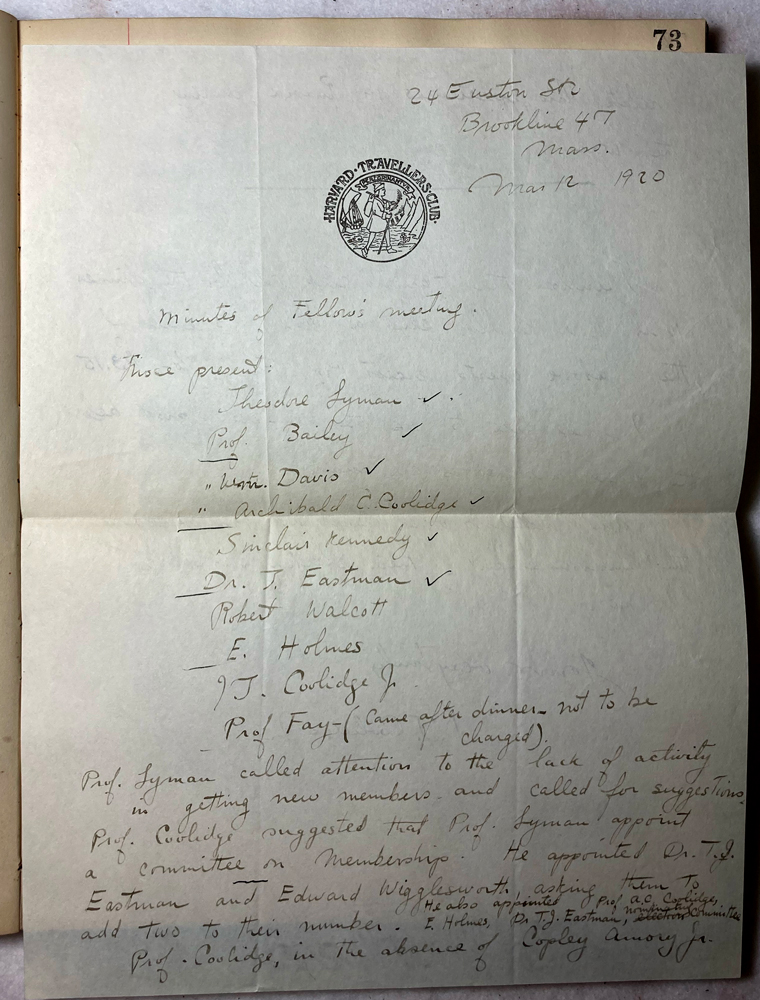 73
24 Euston Str
Brookline 47
Mass.
Mar 12 1920
HARVARD · TRAVELLERS · CLUB
Minutes of Fellow's meeting.
Those present:
Theodore Lyman ✓.
Prof. Bailey ✓
" Wm. Davis ✓
" Archibald C. Coolidge ✓
Sinclair Kennedy ✓
Dr. T. Eastman ✓
Robert Walcott
E. Holmes
J T. Coolidge Jr
Prof Fay - (Came after dinner - not to be
charged).
Prof. Lyman called attention to the lack of activity
in getting new members and called for suggestions.
Prof. Coolidge suggested that Prof. Lyman appoint
a committee on Membership. He appointed Dr. T.J.
Eastman and Edward Wigglesworth asking them to
He also appointed Prof A.C. Coolidge,
add two to their number. E. Holmes, Dr. T.J. Eastman, nominating committee
Prof. Coolidge, in the absence of Copley Amory Jr.